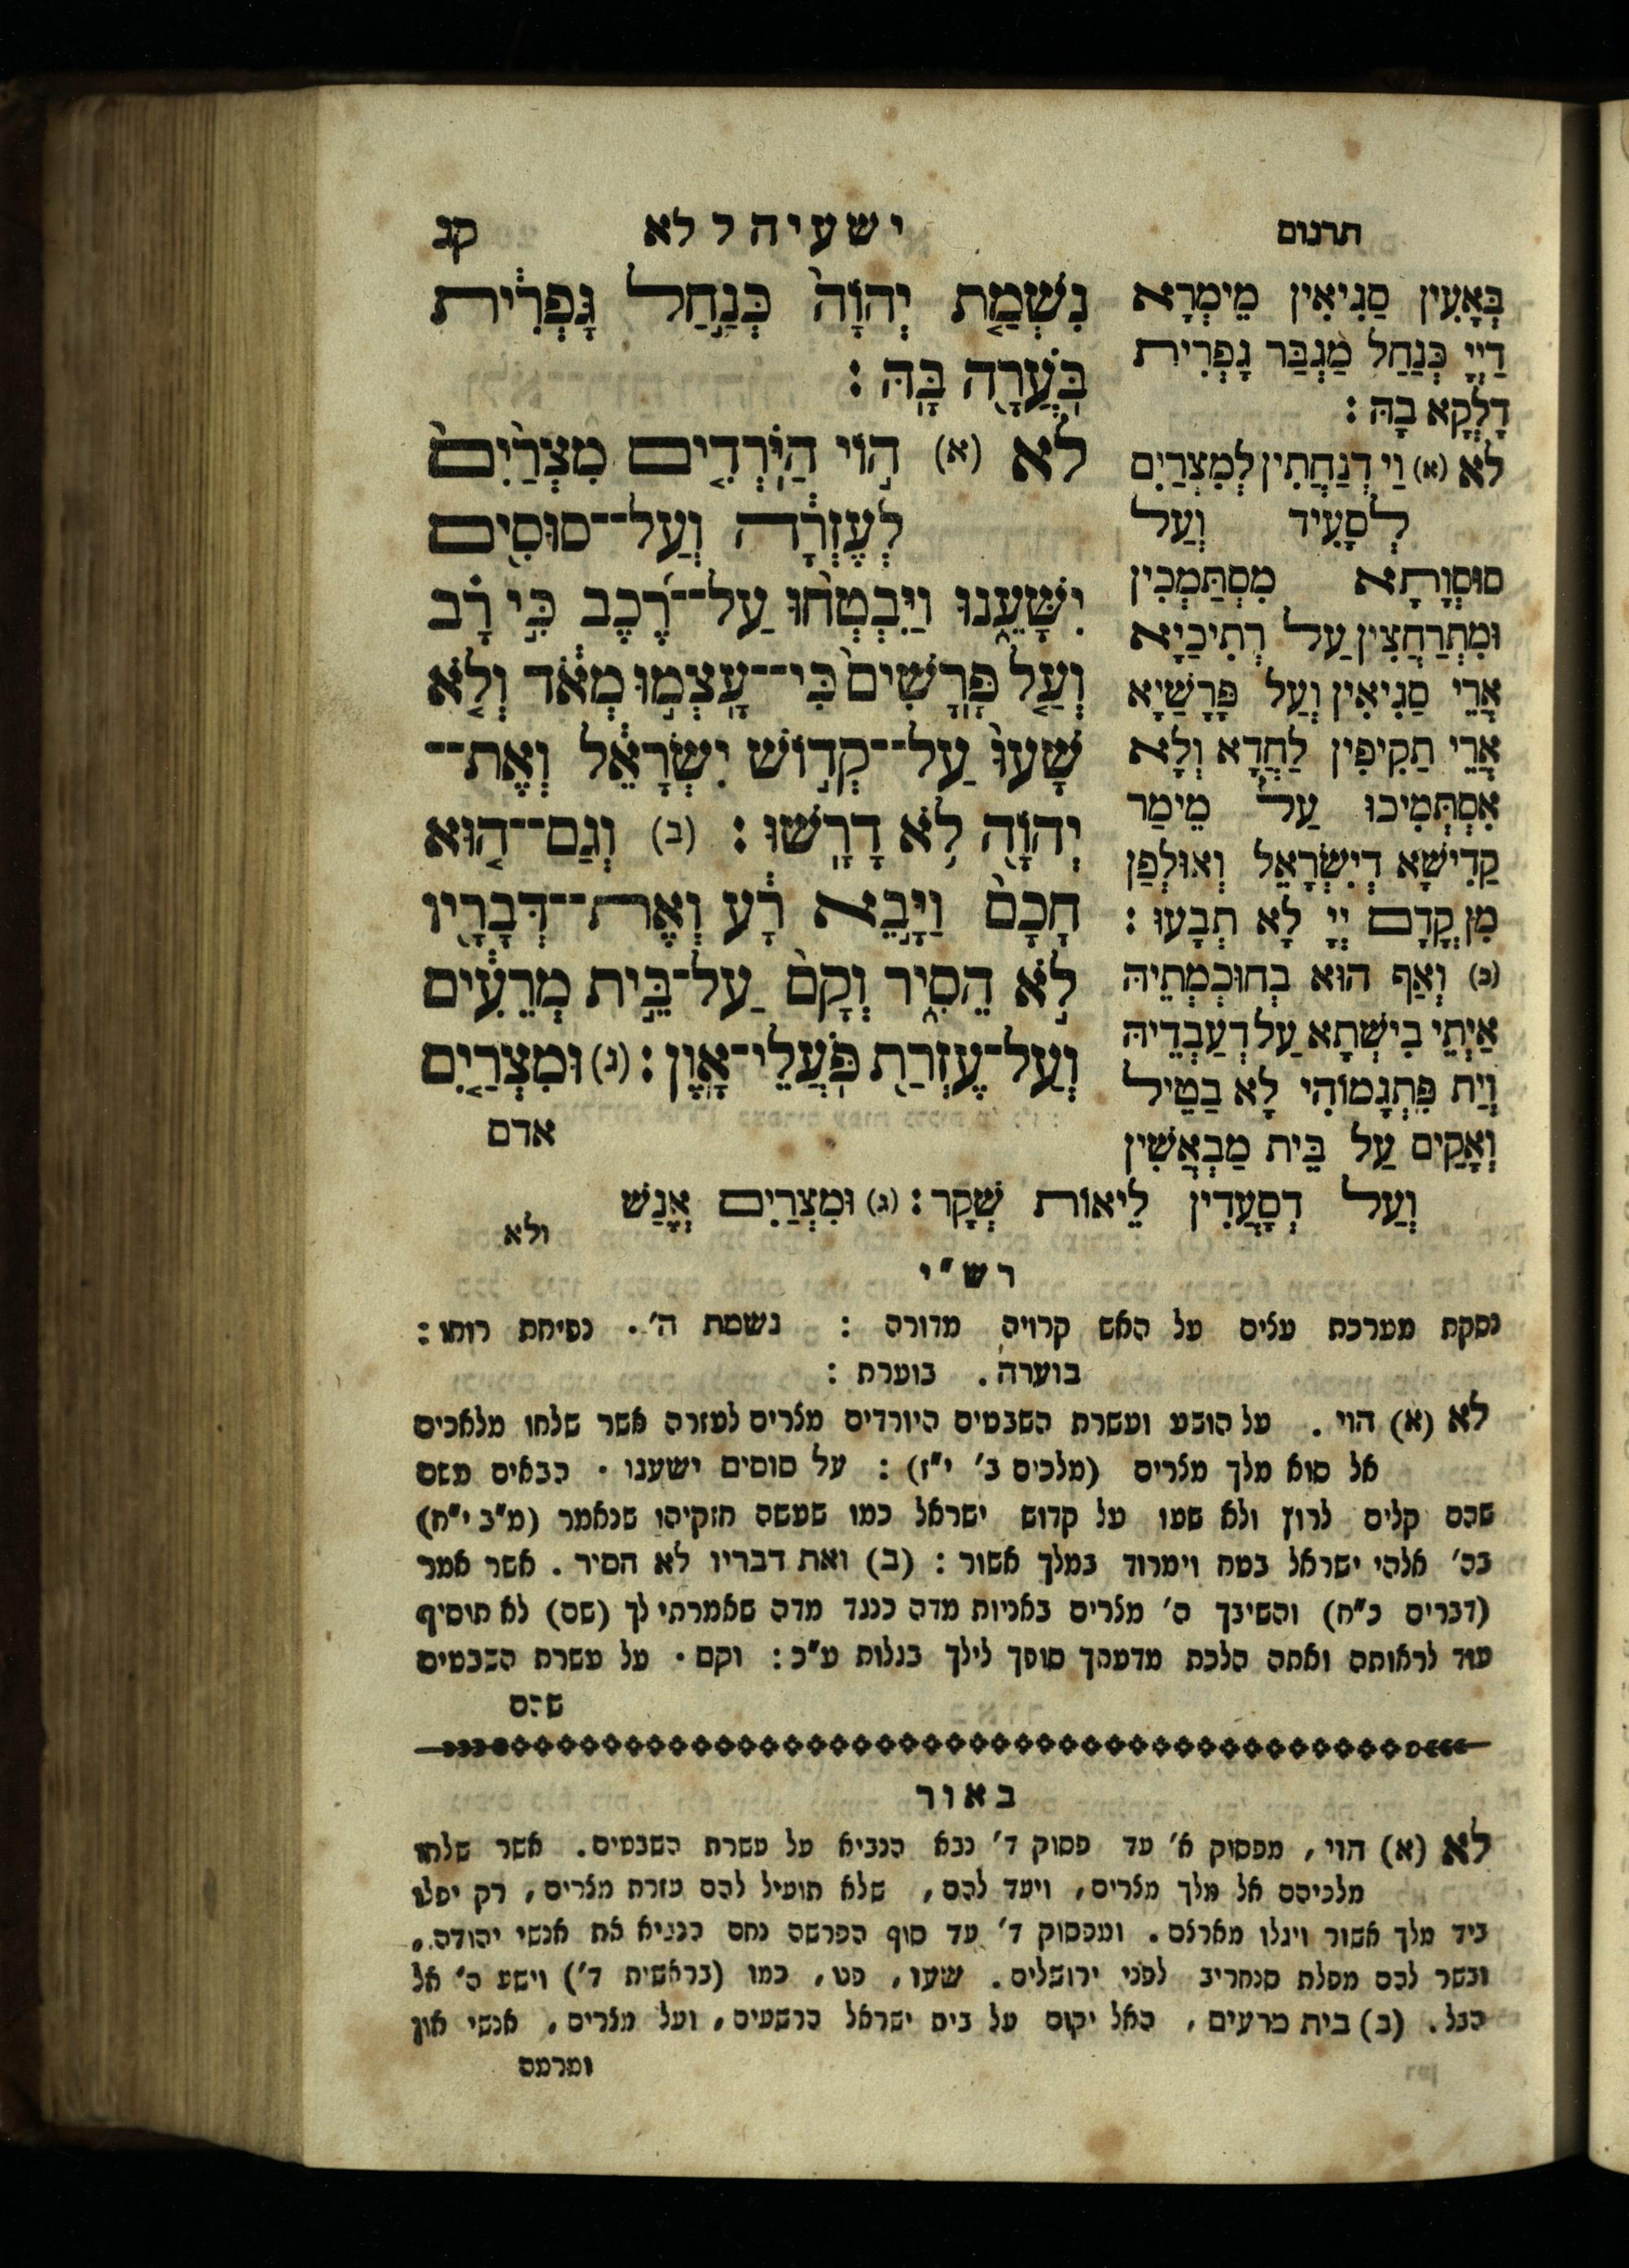 תרגום
ישעיה ל לא
קנ
נִשְׁמַ֤ת יְהוָֹה֙ כְּנַ֣חַל גָּפְרִ֔ית
בֹּֽעֲרָ֖ה בָּֽהּ :
לא (א) ה֣וֹי הַיֹּֽרְדִ֤ים מִצְרַ֙יִם֙
לְעֶזְרָ֔ה וְעַל־סוּסִ֖ים
יִשָּׁעֵ֑נוּ וַיִּבְטְח֨וּ עַל־רֶ֜כֶב כִּ֣י רָ֗ב
וְעַ֤ל פָּֽרָשִׁים֙ כִּי־עָֽצְמ֣וּ מְאֹ֔ד וְלֹ֤א
שָׁעוּ֙ עַל־קְד֣וֹשׁ יִשְׂרָאֵ֔ל וְאֶת־
יְהוָֹ֖ה לֹ֥א דָרָֽשׁוּ : (ב) וְגַם־ה֤וּא
חָכָם֙ וַיָּ֣בֵא רָ֔ע וְאֶת־דְּבָרָ֖יו
לֹ֣א הֵסִ֑יר וְקָם֙ עַל־בֵּ֣ית מְרֵעִ֔ים
וְעַל־עֶזְרַ֖ת פֹּֽעֲלֵי־אָֽוֶן : (ג) וּמִצְרַ֤יִם
אדם
בְּאָעִין סַגִיאִין מֵימְרָא
דַיְיָ כְּנַחַל מַגְבַּר גָפְרִית
דָלְקָא בָהּ :
לא (א) וַי דְנַחֲתִין לְמִצְרַיִם
לְסָעִיד וְעַל
סוּסְוָתָא מִסְתַּמְכִין
וּמִתְרַחֲצִין עַל רְתִיכַיָא
אֲרֵי סַגִיאִין וְעַל פָּרָשַׁיָא
אֲרֵי תַקִיפִין לַחֲדָא וְלָא
אִסְתְּמִיכוּ עַל מֵימַר
קַדִישָׁא דְיִשְׂרָאֵל וְאוּלְפַן
מִן קֳדָם יְיָ לָא תְבָעוּ :
(ב) וְאַף הוּא בְחוּכְמְתֵיהּ
אַיְתֵי בִישְׁתָא עַל דְעַבְדֵיהּ
וְיַת פִּתְגָמוֹהִי לָא בַטֵיל
וְאָקֵים עַל בֵּית מַבְאֲשִׁין
וְעַל דְסָעֲדִין לֵיאוֹת שְׁקָר : (ג) וּמִצְרַיִם אֱנַשׁ
ולא
רש״י
נסקת מערכת עצים על האש קרויה מדורה : נשמת ה׳. נפיחת רוחו :
בוערה . בוערת :
לא (א) הוי . על הושע ועשרת השבטים היורדים מצרים לעזרה אשר שלחו מלאכים
אל סוא מלך מצרים (מלכים ב׳ י״ז) : על סוסים ישענו . הבאים משם
שהם קלים לרוץ ולא שעו על קדוש ישראל כמו שעשה חזקיהו שנאמר (מ״ב י״ח)
בה׳ אלהי ישראל בטח וימרוד במלך אשור : (ב) ואת דבריו לא הסיר . אשר אמר
(דברים כ״ח) והשיבך ה׳ מצרים באניות מדה כנגד מדה שאמרתי לך (שם) לא תוסיף
עוד לראותה ואתה הלכת מדעתך סופך לילך בגלות ע״כ : וקם . על עשרת השבטים
שהם
באור
לא (א) הוי , מפסוק א׳ עד פסוק ד׳ נבא הנביא על עשרת השבטים . אשר שלחו
מלכיהם אל מלך מצרים , ויעד להם , שלא תועיל להם עזרת מצרים , רק יפלו
ביד מלך אשור ויגלו מארצם . ומפסוק ד׳ עד סוף הפרשה נחם הנביא את אנשי יהודה .
ובשר להם מפלת סנחריב לפני ירושלים . שעו , פט , כמו (בראשית ד׳) וישע ה׳ אל
הבל . (ב) בית מרעים , האל יקום על בית ישראל הרשעים , ועל מצרים , אנשי און
ומרמס